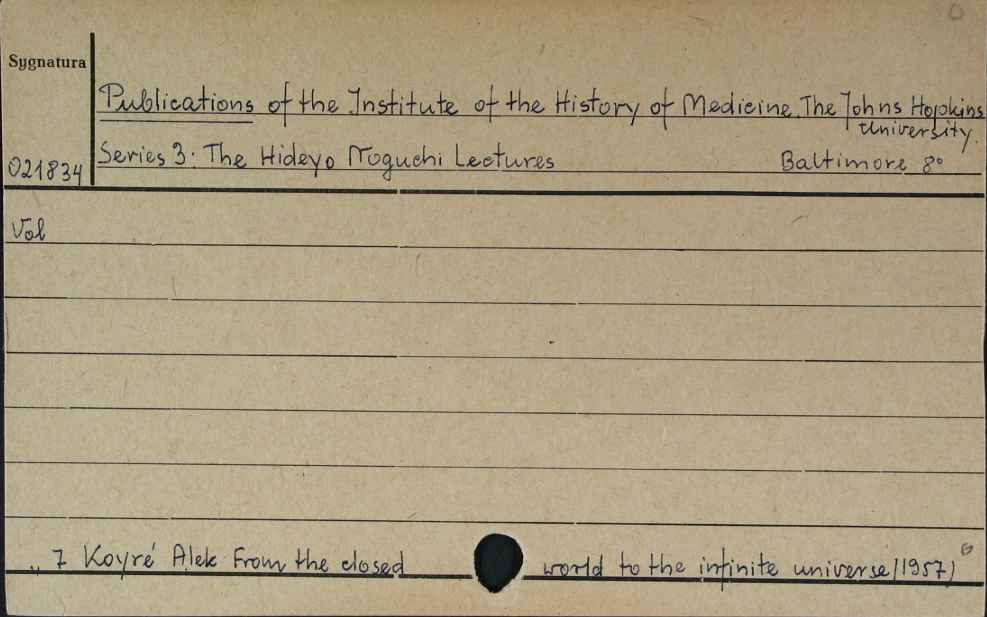 Sygnatura
Publications of the Institute of the History of Medicine. The Johns Hopkins
University.
021834 Series 3: The Hideyo Noguchi Lectures Baltimore 8°
Vol
„ 7 Koyré Alek From the closed world to the infinite universe (1957)